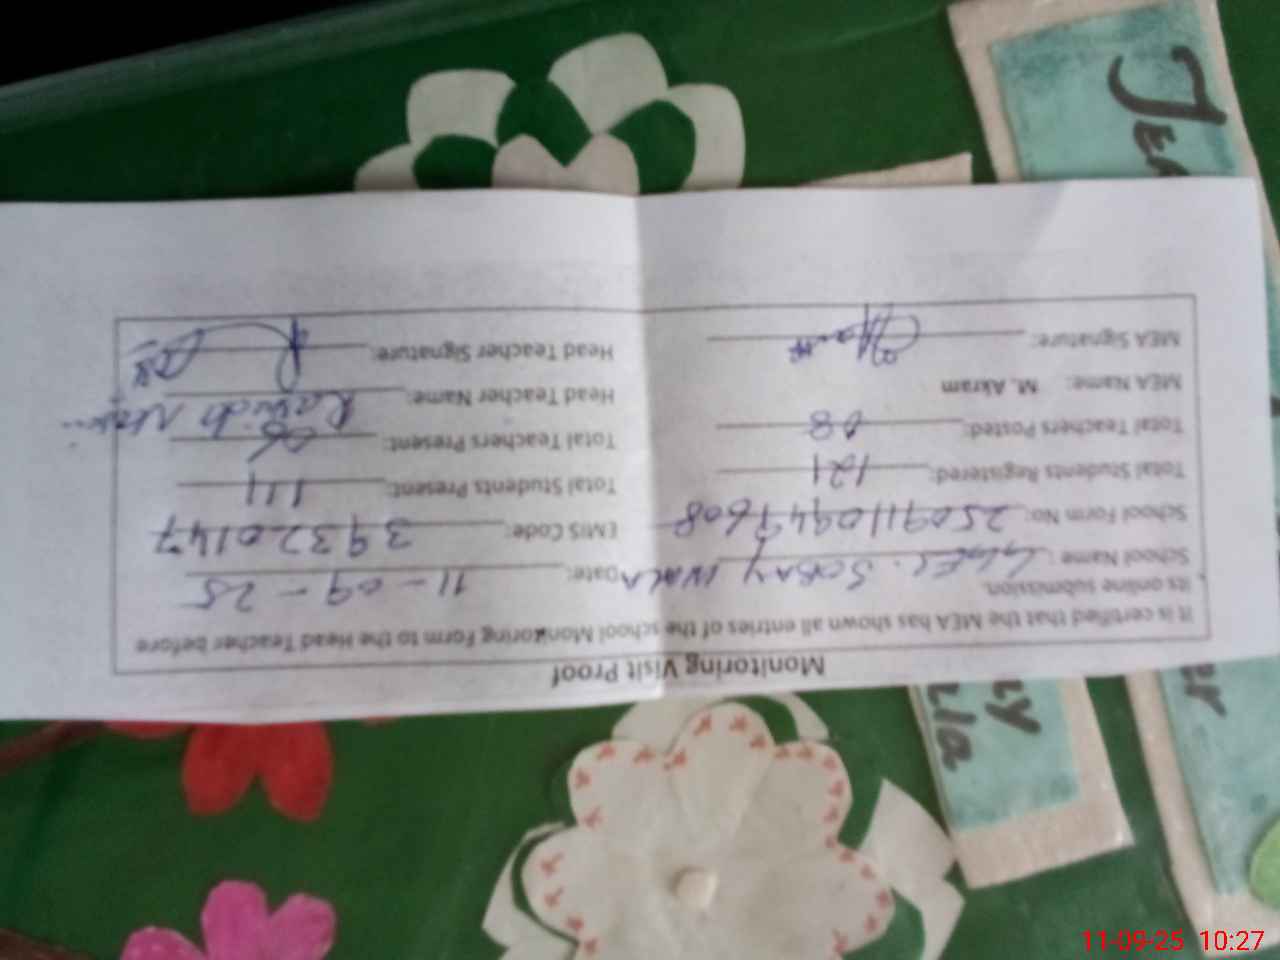 Monitoring Visit Proof
It is certified that the MEA has shown all entries of the school Monitoring Form to the Head Teacher before
its online submission.
School Name: SOBAY WALA Date: 11-09-25
School Form No: 25091109449608 EMIS Code: 39320147
Total Students Registered: 121 Total Students Present: 111
Total Teachers Posted: 08 Total Teachers Present:
MEA Name: M. Akram Head Teacher Name:
MEA Signature: Head Teacher Signature:
11-09-25 10:27